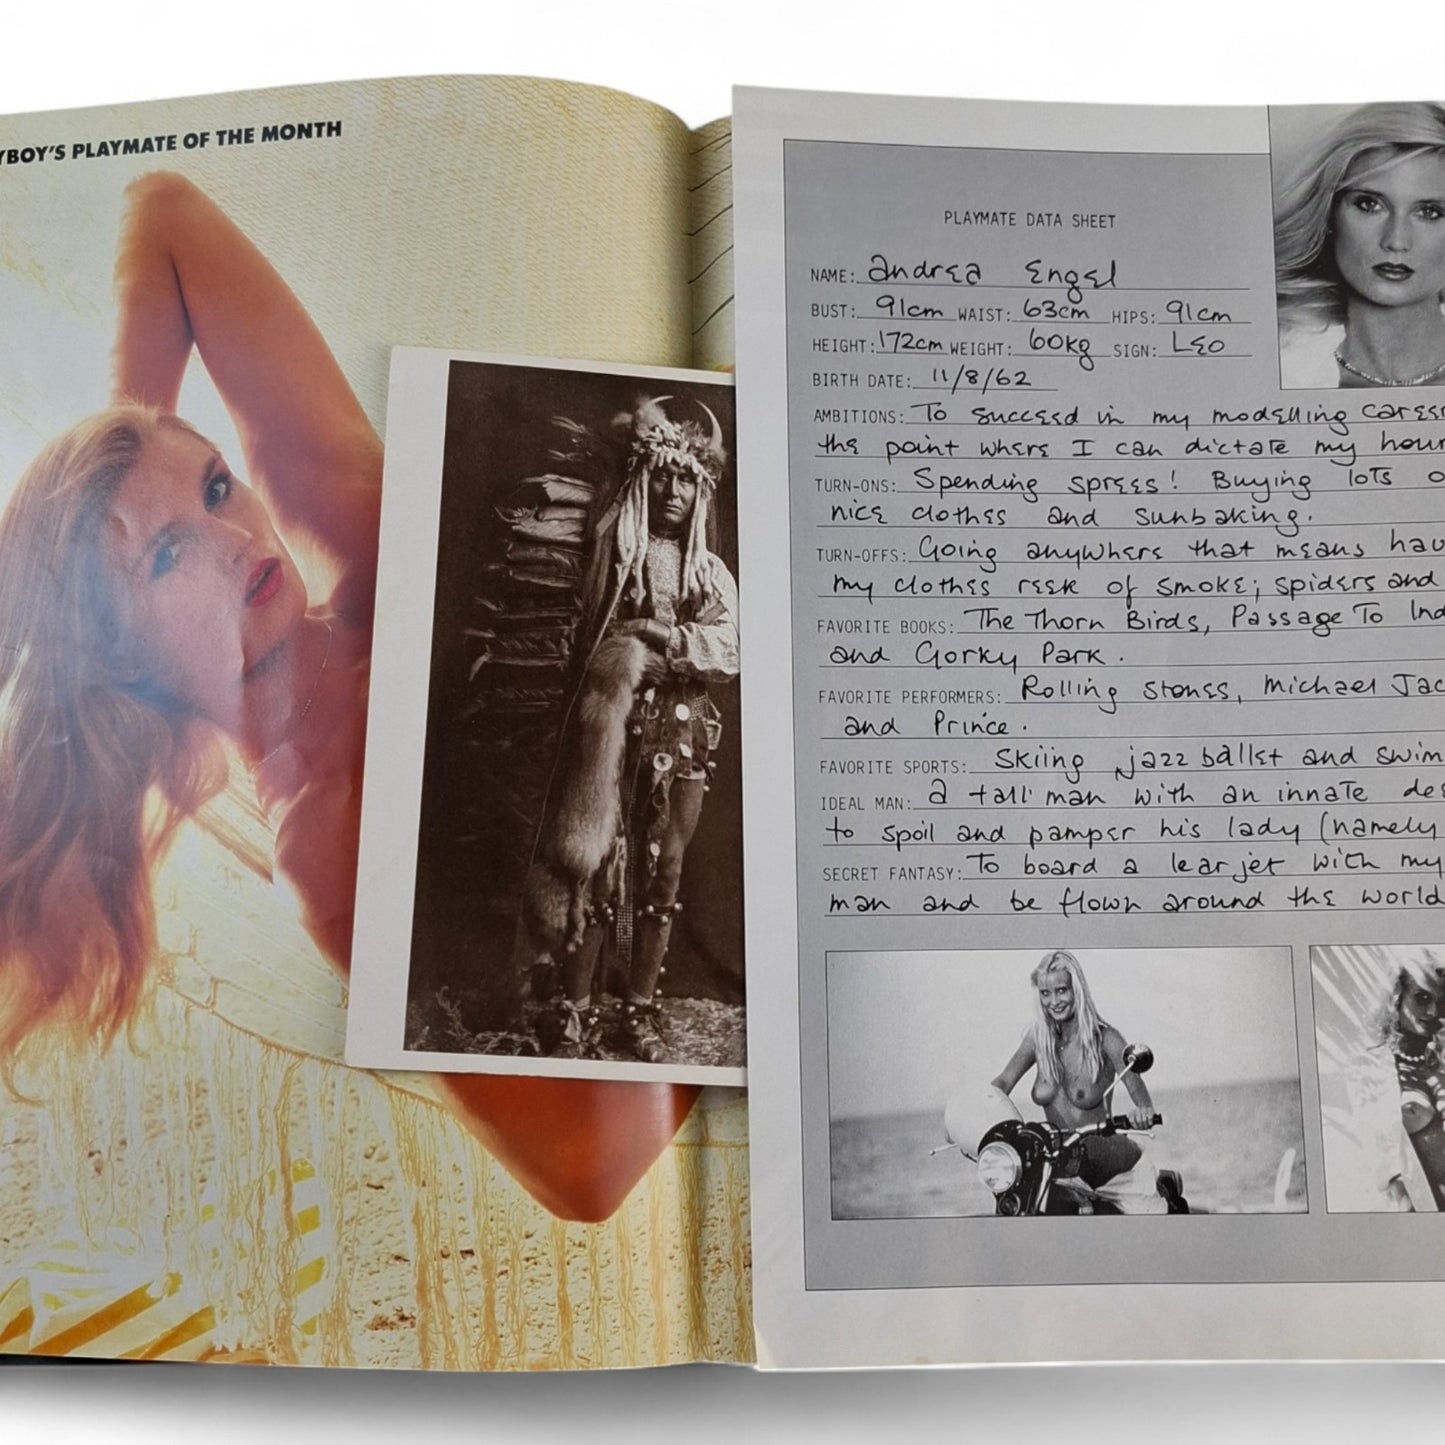 YBOY'S PLAYMATE OF THE MONTH
PLAYMATE DATA SHEET
NAME: Andrea Engel
BUST: 91cm WAIST: 63cm HIPS: 91cm
HEIGHT: 172cm WEIGHT: 60kg SIGN: Leo
BIRTH DATE: 11/8/62
AMBITIONS: To succeed in my modelling career
the point where I can dictate my hour
TURN-ONS: Spending sprees! Buying lots o
nice clothes and sunbaking.
TURN-OFFS: Going anywhere that means hav
my clothes reek of smoke; spiders and
FAVORITE BOOKS: The Thorn Birds, Passage To Ind
and Gorky Park.
FAVORITE PERFORMERS: Rolling Stones, Michael Jac
and Prince.
FAVORITE SPORTS: Skiing, jazz ballet and swim
IDEAL MAN: A tall man with an innate des
to spoil and pamper his lady (namely
SECRET FANTASY: To board a learjet with my
man and be flown around the world